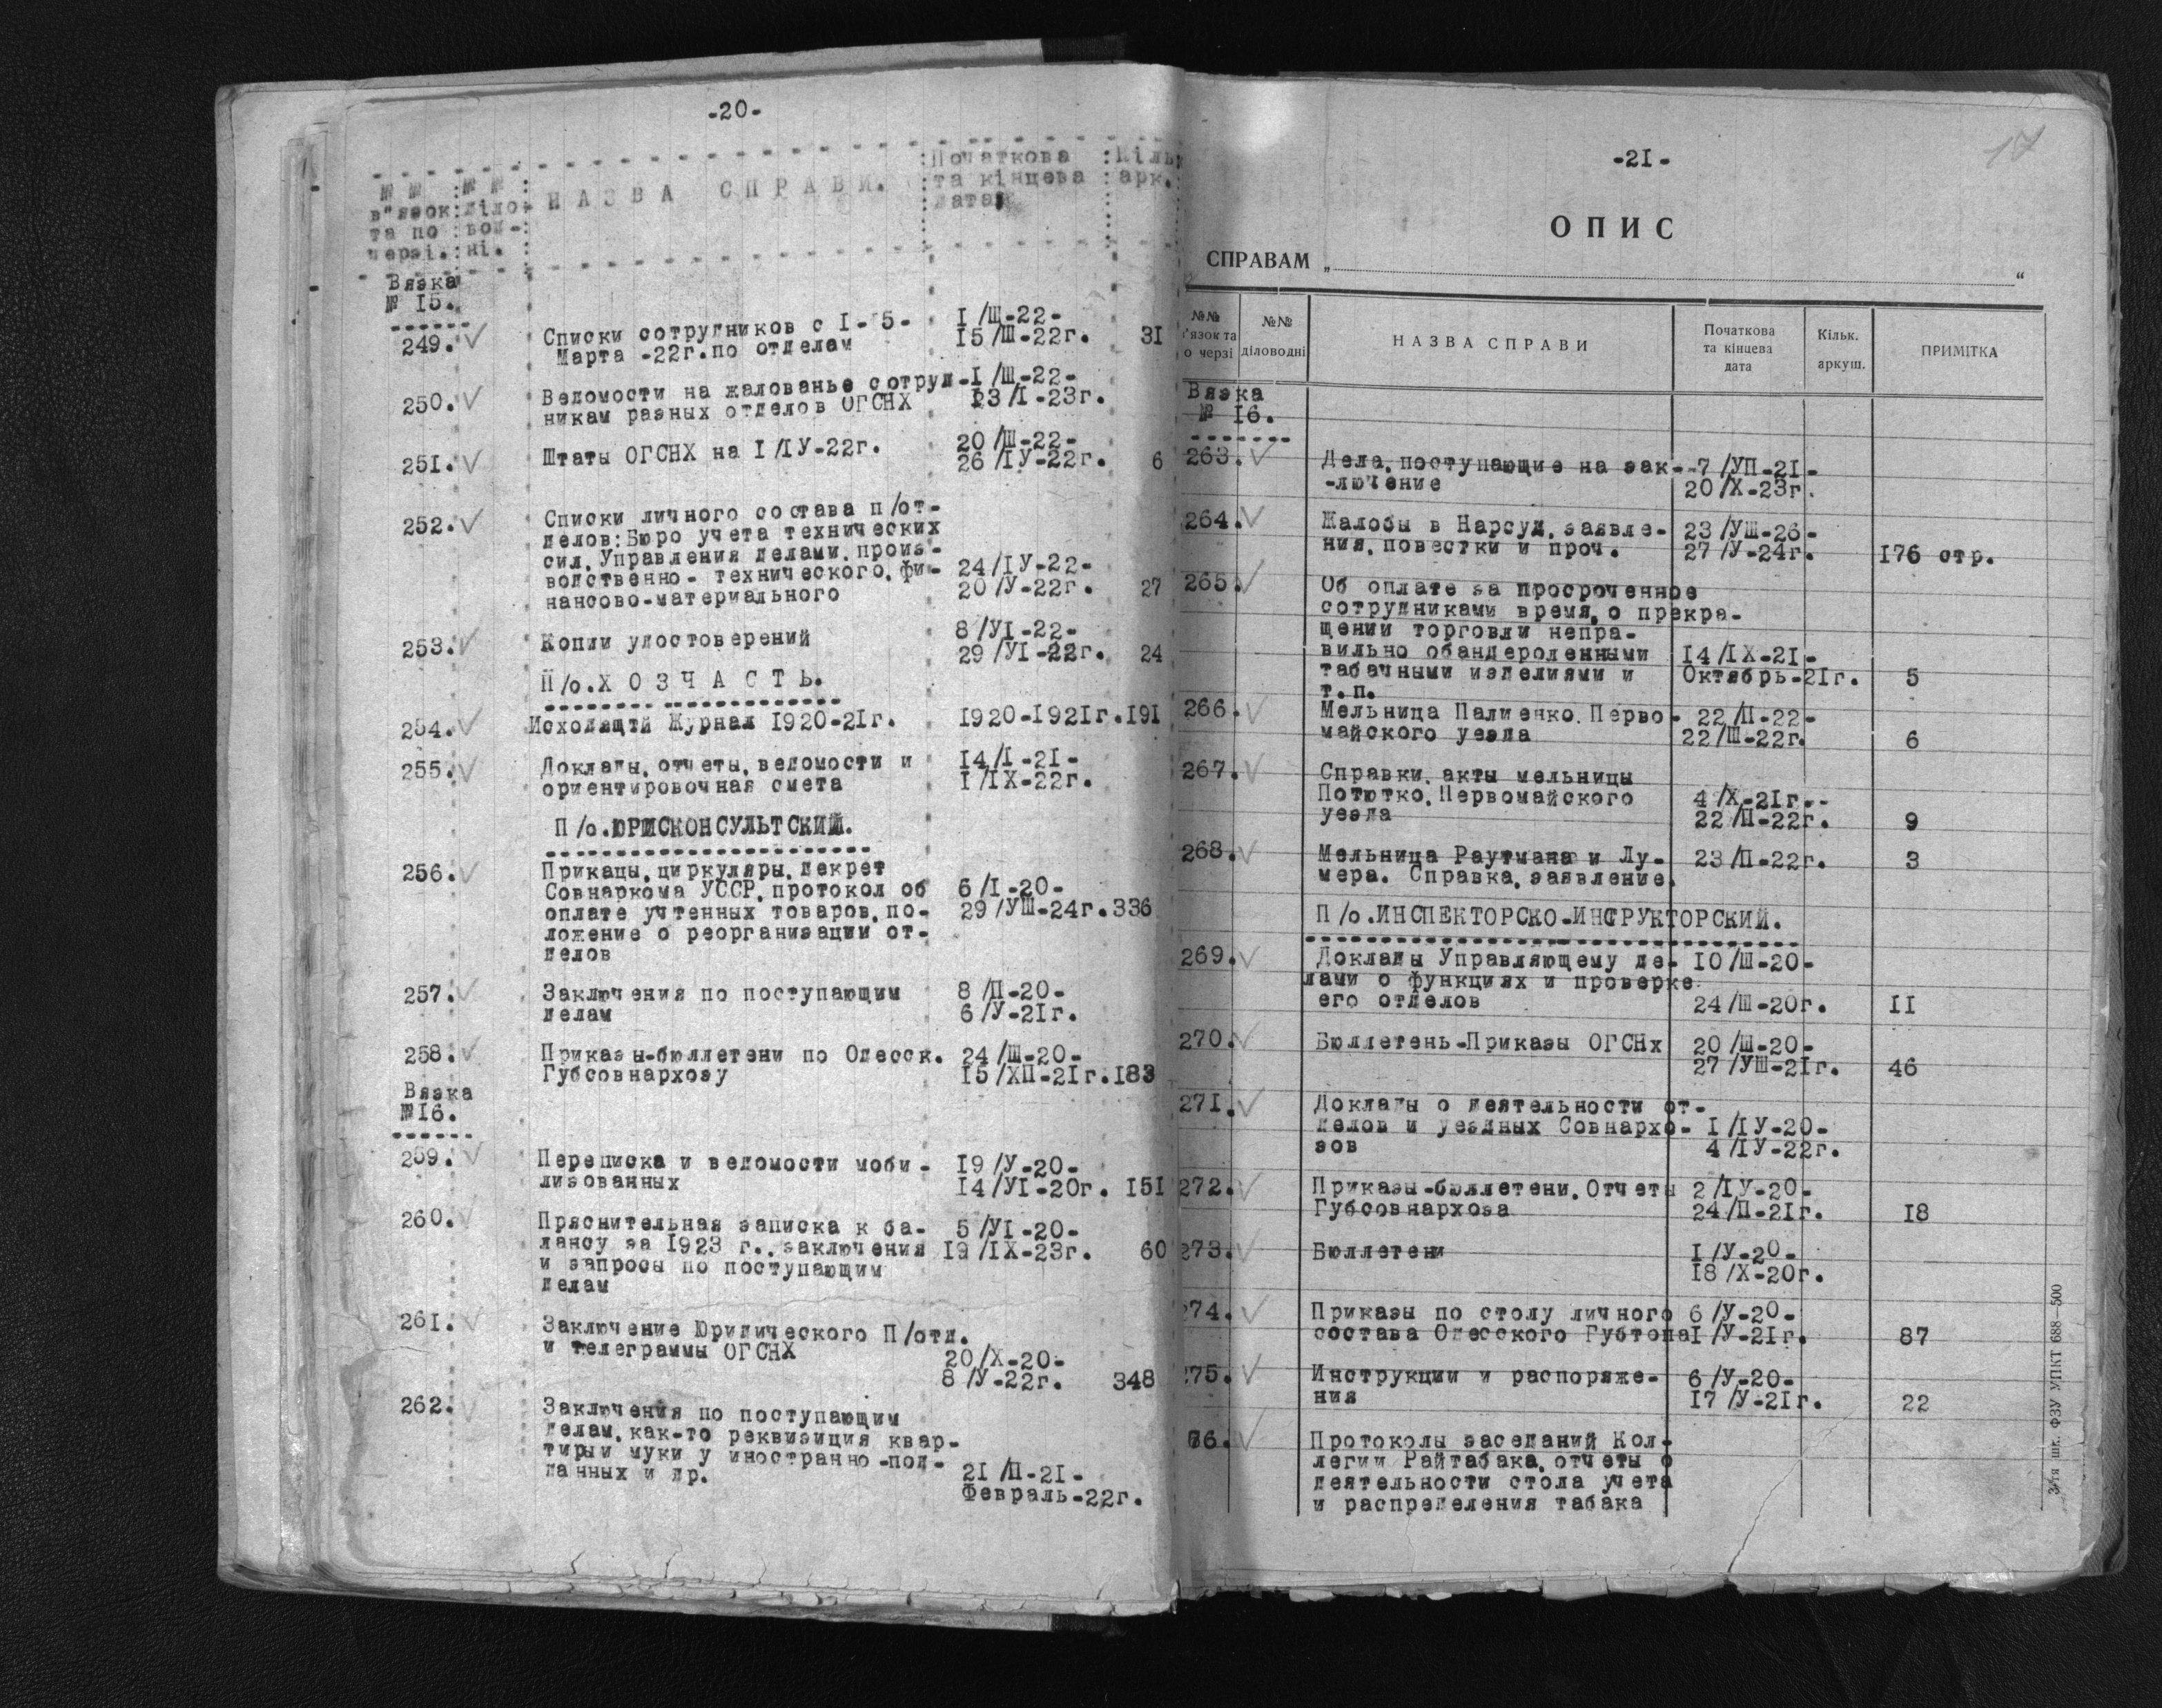 -20-
№ № :№ № :
в"язок:діло-:
та по :вод-:
черзі.:ні. :
НАЗВА СПРАВИ.
:Початкова :Кіль
:та кінцева :арк.
:дата
Вязка
№ 15.
249. Списки сотрудников с I-15- I/Ш-22-
Марта -22г.по отделам 15/Ш-22г. 31
250. Ведомости на жалованье сотруд-I/Ш-22-
никам разных отделов ОГСНХ 23/I-23г.
251. Штаты ОГСНХ на I/IУ-22г. 20/Ш-22-
26/IУ-22г. 6
252. Списки личного состава п/от-
делов:Бюро учета технических
сил,Управления делами,произ-
водственно- технического,фи- 24/IУ-22-
нансово-материального 20/У-22г. 27
253. Копии удостоверений 8/УI-22-
29/УI-22г. 24
П/о.ХОЗЧАСТЬ.
254. Исходящтй Журнал 1920-21г. 1920-1921г.191
255. Доклады,отчеты,ведомости и 14/I-21-
ориентировочная смета I/IX-22г.
П/о.ЮРИСКОНСУЛЬТСКИЙ.
256. Прикацы,циркуляры,декрет
Совнаркома УССР,протокол об 6/I-20-
оплате учтенных товаров,по- 29/УШ-24г.336
ложение о реорганизации от-
делов
257. Заключения по поступающим 8/П-20-
делам 6/У-21г.
258. Приказы-бюллетени по Одесск. 24/Ш-20-
Губсовнархозу 15/ХП-21г.183
Вязка
№16.
259. Переписка и ведомости моби- 19/У-20-
лизованных 14/УI-20г. 151
260. Пряснительная записка к ба- 5/УI-20-
лансу за 1923 г.,заключения 19/IX-23г. 60
и запросы по поступающим
делам
261. Заключение Юридического П/отд.
и телеграммы ОГСНХ 20/Х-20-
8/У-22г. 348
262. Заключения по поступающим
делам,как-то реквизиция квар-
тиры и муки у иностранно-под-
данных и др. 21/П-21-
Февраль-22г.
17
-21-
ОПИС
СПРАВАМ „ “
№№
в'язок та
по черзі
№№
діловодні
НАЗВА СПРАВИ
Початкова
та кінцева
дата
Кільк.
аркуш.
ПРИМІТКА
Вязка
№ 16.
263. Дела,поступающие на зак--7/УП-21-
-лючение 20/Х-23г.
264. Жалобы в Нарсуд,заявле- 23/УШ-26-
ния,повестки и проч. 27/У-24г. 176 стр.
265. Об оплате за просроченное
сотрудниками время,о прекра-
щении торговли непра-
вильно обандероленными 14/IX-21-
табачными изделиями и Октябрь-21г. 5
т.п.
266. Мельница Палиенко,Перво- 22/П-22-
майского уезда 22/Ш-22г. 6
267. Справки,акты мельницы
Потютко,Первомайского 4/Х-21г.-
уезда 22/П-22г. 9
268. Мельница Раутмана и Лу- 23/П-22г. 3
мера. Справка,заявление.
П/о.ИНСПЕКТОРСКО-ИНСТРУКТОРСКИЙ.
269. Доклады Управляющему де- 10/Ш-20-
лами о функциях и проверке
его отделов 24/Ш-20г. II
270. Бюллетень-Приказы ОГСНх 20/Ш-20-
27/УШ-21г. 46
271. Доклады о деятельности от-
делов и уездных Совнархо- I/IУ-20-
зов 4/IУ-22г.
272. Приказы-бюллетени,Отчеты 2/IУ-20-
Губсовнархоза 24/П-21г. 18
273. Бюллетени I/У-20-
18/Х-20г.
274. Приказы по столу личного 6/У-20-
состава Одесского Губтопа I/У-21г. 87
275. Инструкции и распоряже- 6/У-20-
ния 17/У-21г. 22
76. Протоколы заседаний Кол-
легии Райтабака,отчеты о
деятельности стола учета
и распределения табака
шк. ФЗУ УПКТ 688—500